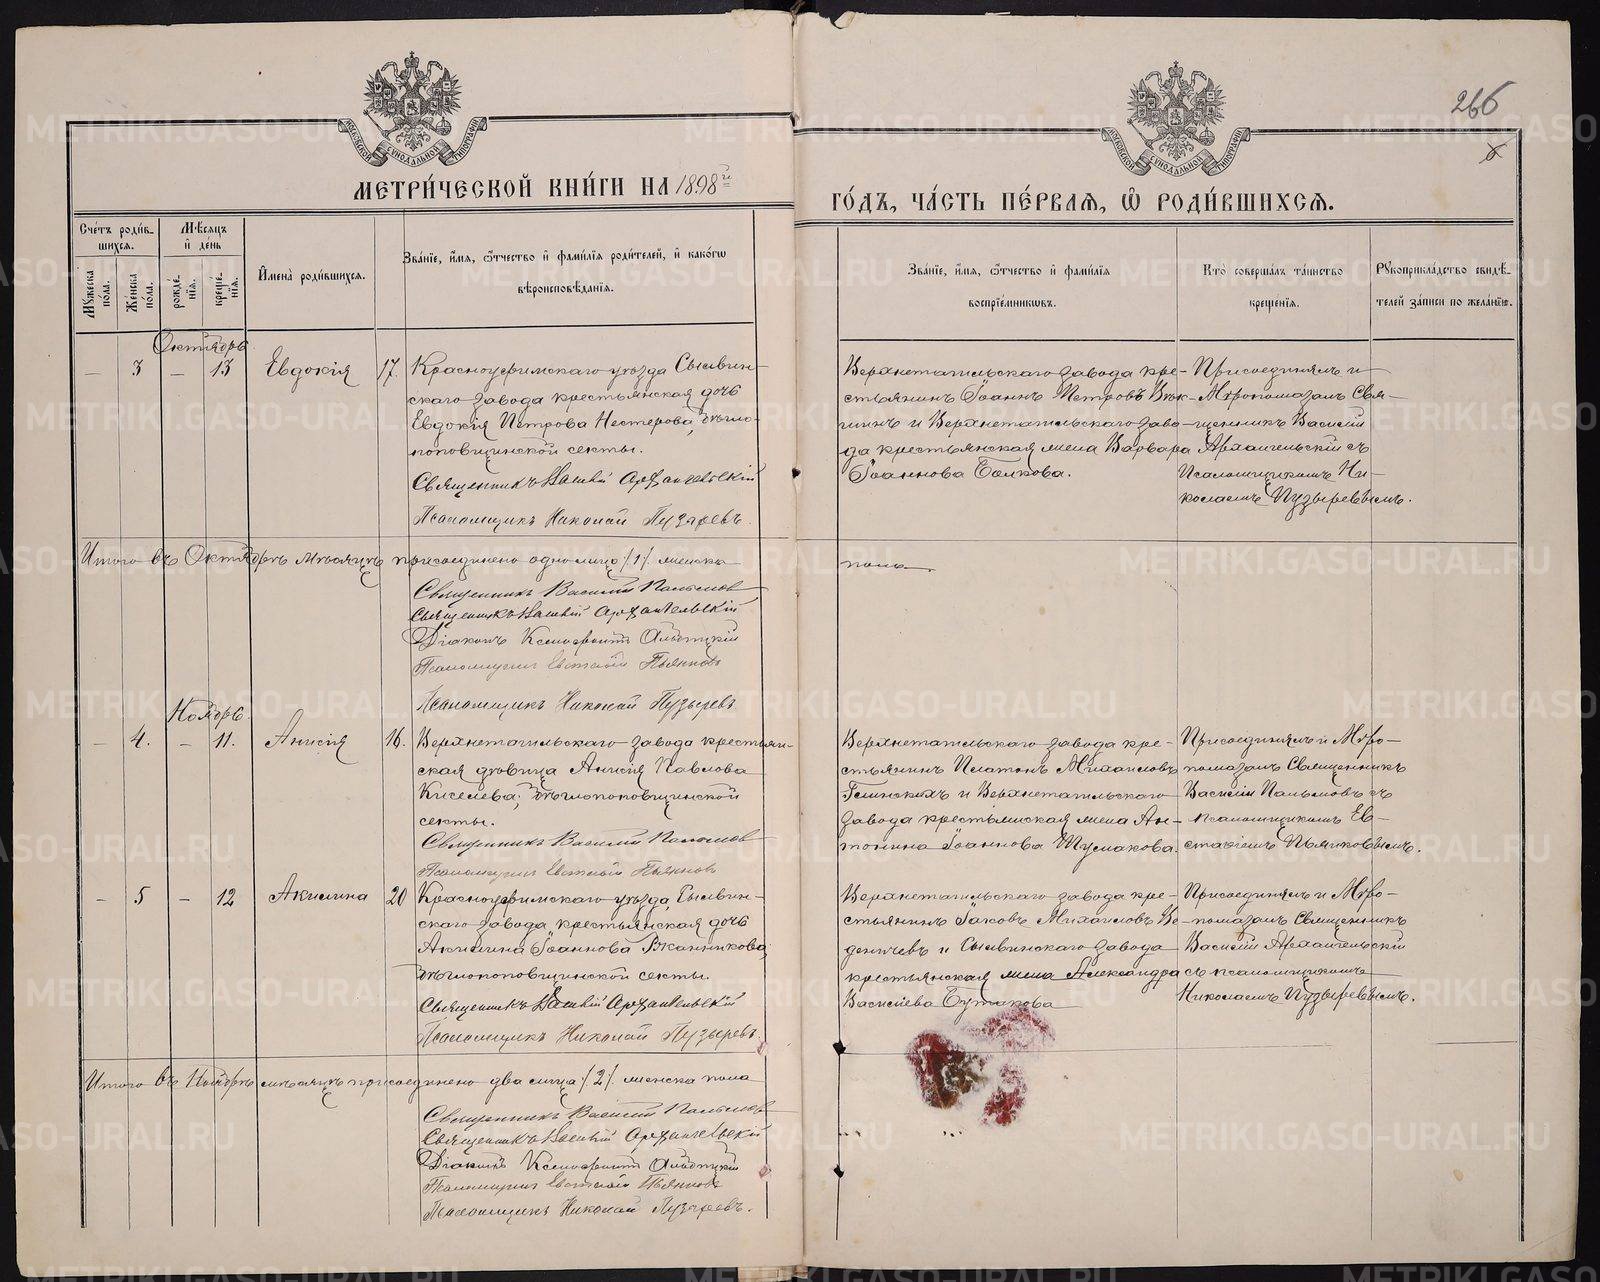 266
МОСКОВСКОЙ СѴНОДАЛЬНОЙ ТИПОГРАФІИ
МОСКОВСКОЙ СѴНОДАЛЬНОЙ ТИПОГРАФІИ
МЕТРИ́ЧЕСКОЙ КНИ́ГИ НА 1898й
ГО́ДЪ, ЧА́СТЬ ПЕ́РВАЯ, Ѡ РОДИ́ВШИХСЯ.
Сче́тъ роди́в-
шихся.
Мѣ́сяцъ
и де́нь
Му́жеска по́ла.
Же́нска по́ла.
рожде́-
нїя.
креще́-
нїя.
Имена̀ роди́вшихся.
Зва́нїе, имя, ѻтчество и фами́лїя роди́телей, и како́гѡ
вѣроисповѣ́данїя.
Зва́нїе, имя, ѻтчество и фами́лїя
воспрїе́мниковъ.
Кто̀ соверша́лъ та́инство
креще́нїя.
Рукоприкла́дство свидѣ́-
телей за́писи по жела́нїю.
Октябрь
— 3 — 13 Евдокія 17. Красноуфимскаго уѣзда Сылвин-
скаго завода крестьянская дочь
Евдокія Петрова Нестерова, бѣгло-
поповщинской секты.
Священникъ Василій Архангельскій
Псаломщикъ Николай Пузыревъ.
Верхнетагильскаго завода кре-
стьянинъ Іоаннъ Петровъ
и Верхнетагильскаго заво-
да крестьянская жена Варвара
Іоаннова Балкова.
Присоединялъ и
Мѵропомазалъ Свя-
щенникъ Василій
Архангельскій съ
Псаломщикомъ Ни-
колаемъ Пузыревымъ.
Итого въ Октябрѣ мѣсяцѣ присоединено одно лицо /1/ женска
пола
Священникъ Василій Пальмов
Священникъ Василій Архангельскій
Діаконъ Ксенофонтъ
Псаломщикъ Евстафій Пьянковъ
Псаломщикъ Николай Пузыревъ
Ноябрь
— 4. — 11. Анисія 16. Верхнетагильскаго завода крестьян-
ская дѣвица Анисія Павлова
Киселева, бѣглопоповщинской
секты.
Священникъ Василій Пальмов
Псаломщикъ Евстафій Пьянков
Верхнетагильскаго завода кре-
стьянинъ Платонъ Михаиловъ
Глинскихъ и Верхнетагильскаго
завода крестьянская жена Ан-
тонина Іоаннова Шумакова.
Присоединялъ и Мѵро-
помазалъ Священникъ
Василій Пальмовъ съ
псаломщикомъ Ев-
стафіемъ Пьянковымъ.
— 5 — 12 Акилина 20 Красноуфимскаго уѣзда, Сылвин-
скаго завода крестьянская дочь
Акилина Іоаннова
бѣглопоповщинской секты.
Священникъ Василій Архангельскій
Псаломщикъ Николай Пузыревъ.
Верхнетагильскаго завода кре-
стьянинъ Іаковъ Михаиловъ Во-
деничевъ и Сылвинскаго завода
крестьянская жена Александра
Василіева Бутакова
Присоединялъ и Мѵро-
помазалъ Священникъ
Василій Архангельскій
съ псаломщикомъ
Николаемъ Пузыревымъ.
Итого въ Ноябрѣ мѣсяцѣ присоединено два лица /2/. женска пола
Священникъ Василій Пальмов
Священникъ Василій Архангельскій
Діаконъ Ксенофонтъ
Псаломщикъ Евстафій Пьянковъ
Псаломщикъ Николай Пузыревъ.
METRIKI.GASO-URAL.RU